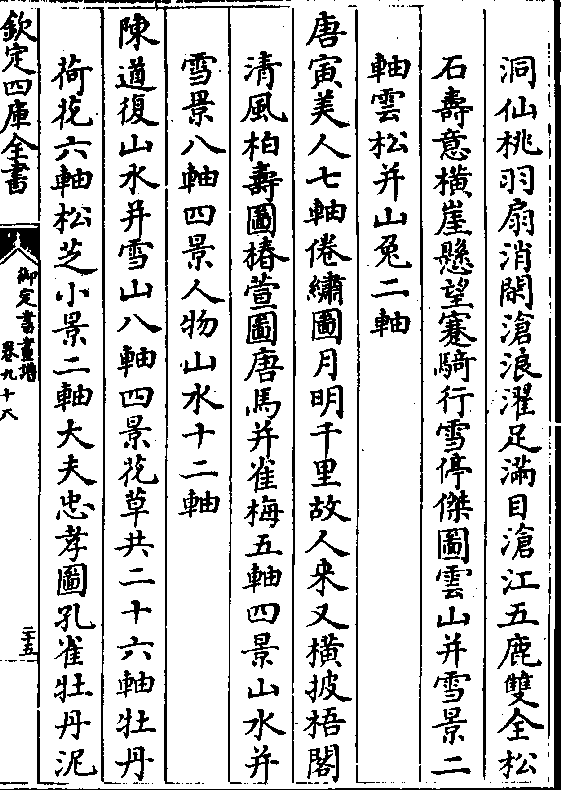 洞仙桃羽扇消閑滄浪濯足滿目滄江五鹿雙全松
石壽意橫崖懸望蹇騎行雪停傑圖雲山并雪景二
軸雲松并山兔二軸
唐寅美人七軸倦繡圖月明千里故人来又橫披梧閣
清風柏壽圖椿萱圖唐馬并雀梅五軸四景山水并
雪景八軸四景人物山水十二軸
陳道復山水并雪山八軸四景花草共二十六軸牡丹
荷花六軸松芝小景二軸大夫忠孝圖孔雀牡丹泥
欽定四庫全書
御定書畫譜
卷九十八
二十五